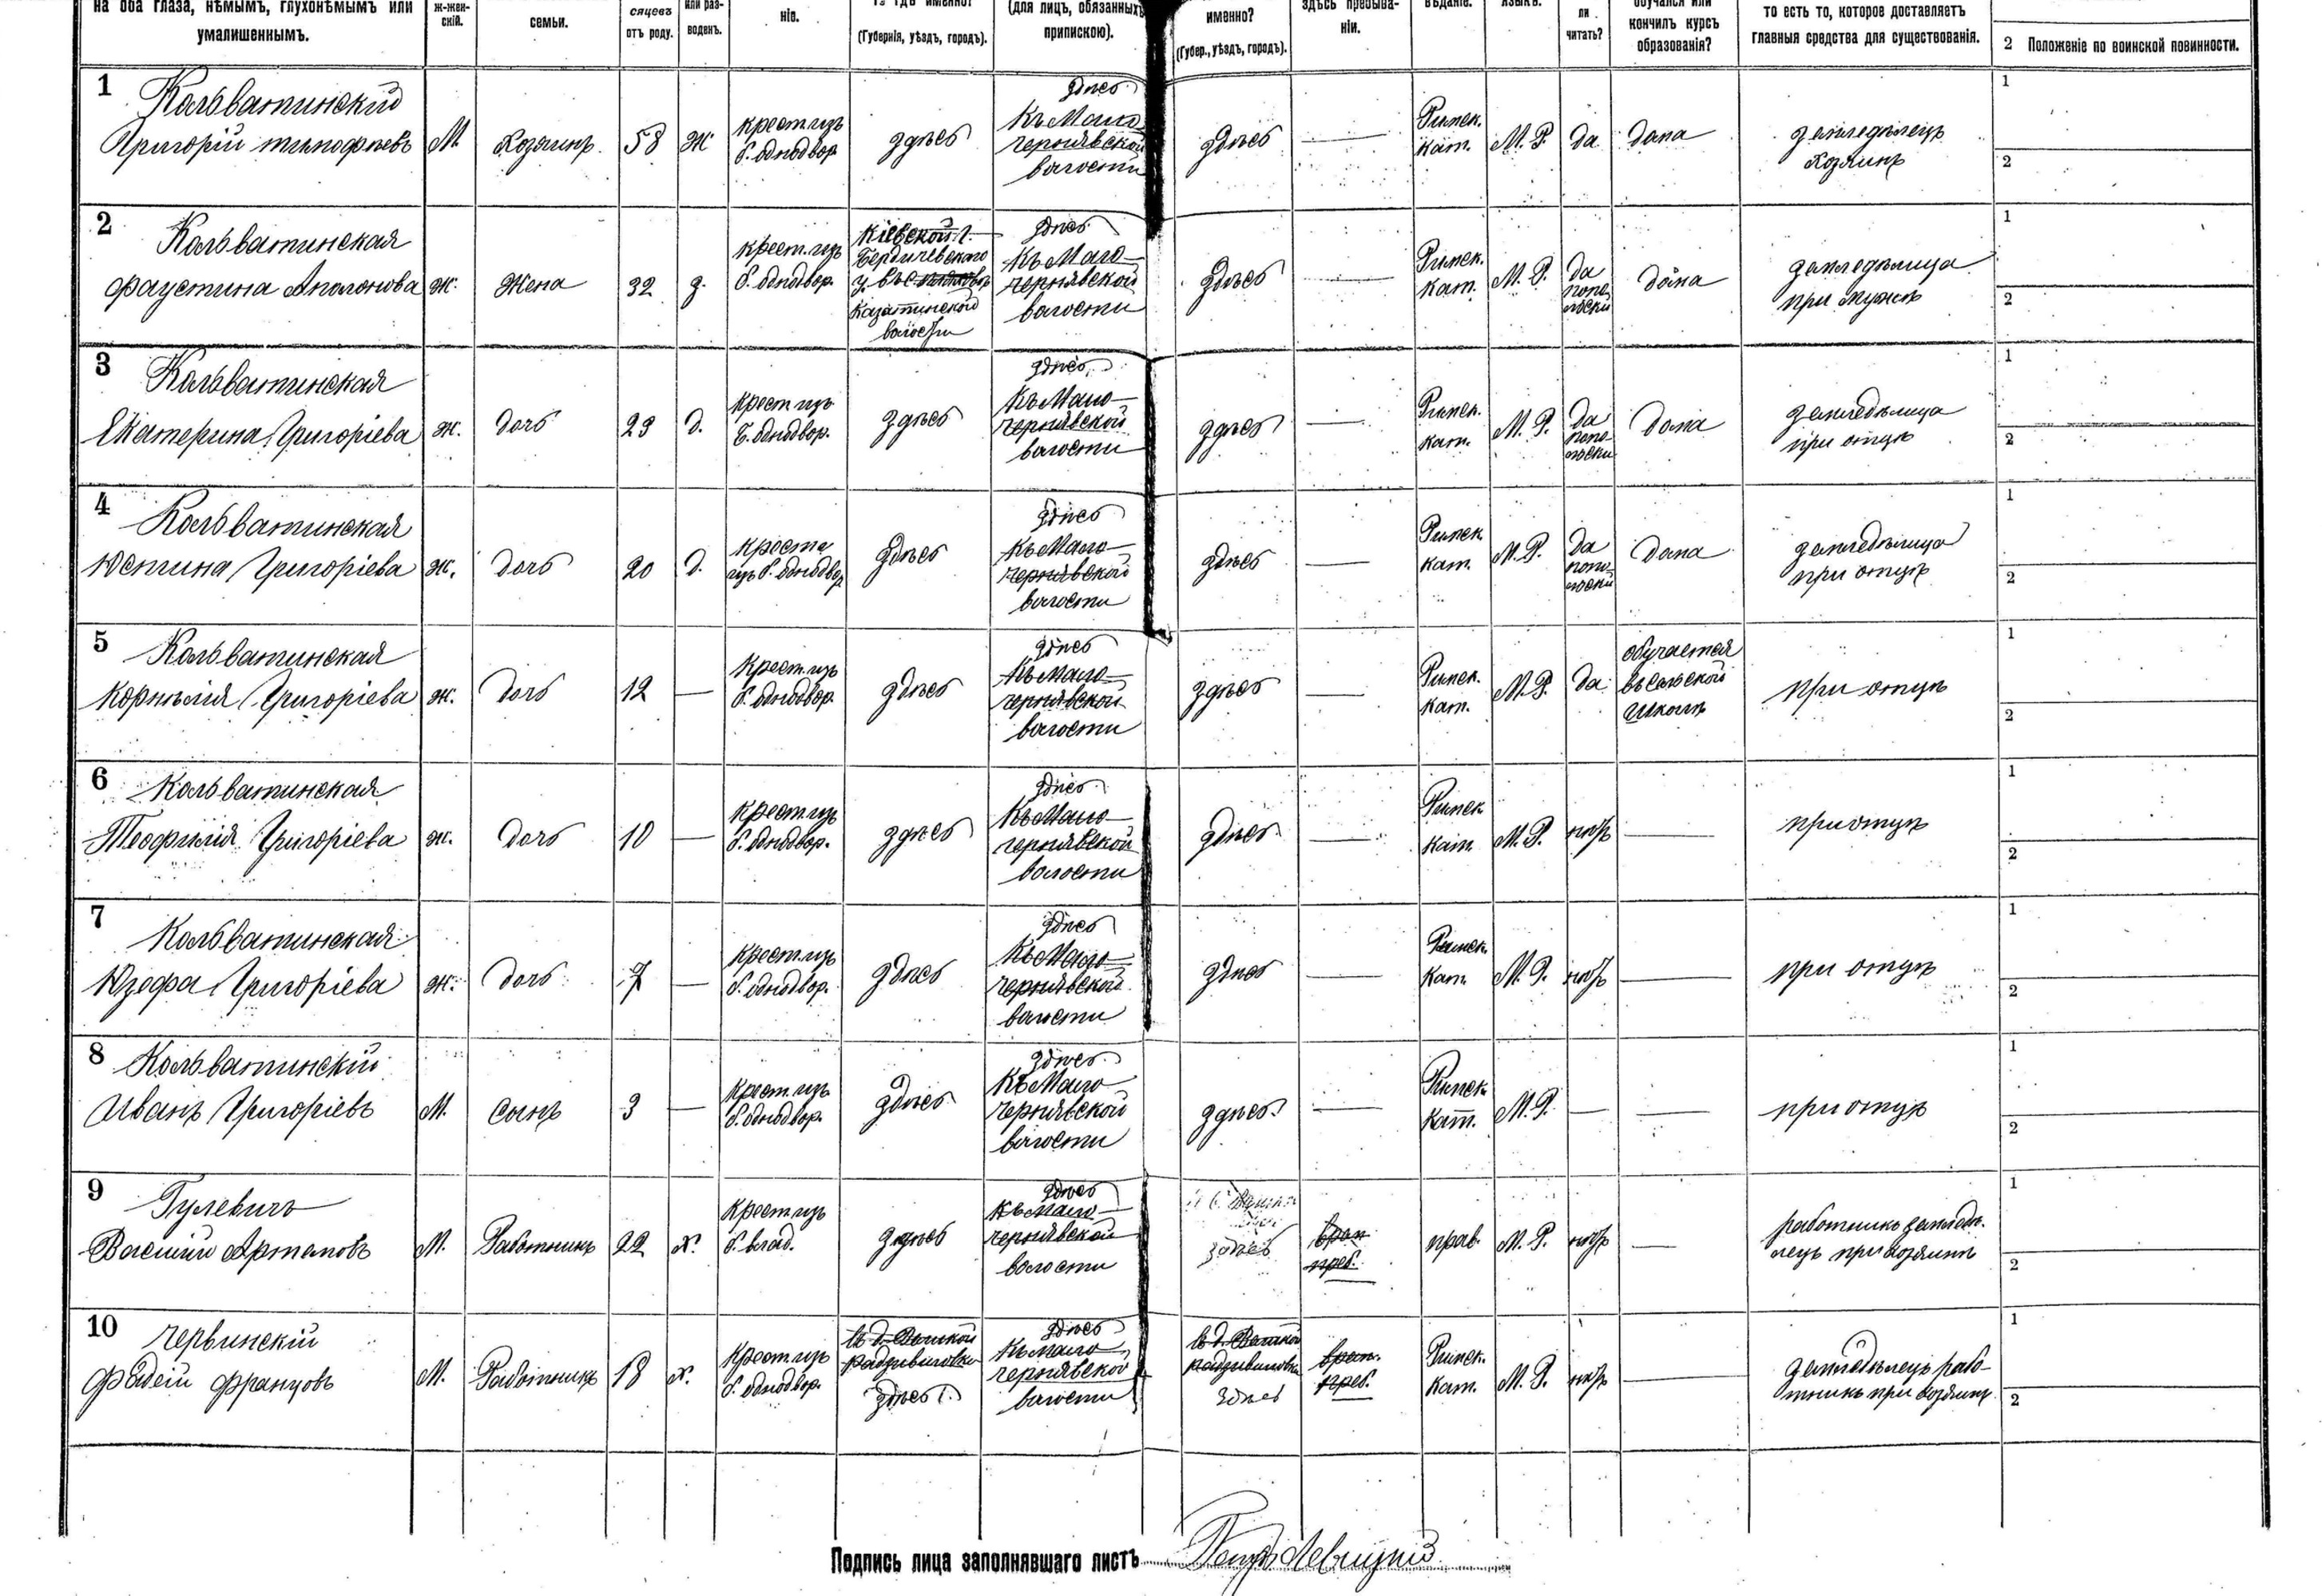 на оба глаза, нѣмымъ, глухонѣмымъ или
умалишеннымъ.
ж-жен-
скій.
семьи.
сяцевъ
отъ роду.
или раз-
воденъ.
ніе.
(Губернія, уѣздъ, городъ).
(для лицъ, обязанныхъ
припискою).
именно?
(Губер., уѣздъ, городъ).
здѣсь пребыва-
ніи.
ли
читать?
обучался или
кончилъ курсъ
образованія?
то есть то, которое доставляетъ
главныя средства для существованія.
2 Положеніе по воинской повинности.
1
Кольватинский
Григорій тимофѣевъ
М.
Хозяинъ
58
Ж
крест. изъ
б. однодвор.
здѣсь
здѣсь
Къ Мало
чернявской
волости
здѣсь
—
Римск.
кат.
М. Р.
да
дома
земледѣлецъ
хозяинъ
1
2
2
Кольватинская
Фаустина Аполонова
ж.
Жена
32
з.
крест. изъ
б. однодвор.
Кіевской г.
Бердичевского
Казатинской
волости
здѣсь
Къ Мало-
чернявской
волости
здѣсь
—
Римск.
кат.
М. Р.
да
попо
льски
дома
земледѣлица
при мужѣ
1
2
3
Кольватинская
Екатерина Григоріева
ж.
дочь
23
д.
Крест изъ
б. однодвор.
здѣсь
здѣсь
Къ Мало-
чернявской
волости
здѣсь
—
Римск.
кат.
М. Р.
да
попо
льски
дома
земледѣлица
при отцѣ
1
2
4
Кольватинская
Юстина Григоріева
ж.
дочь
20
д.
Крестя
изъ б. однодвор
здѣсь
здѣсь
Къ Мало-
чернявской
волости
здѣсь
—
Римск
кат.
М. Р.
да
попо-
льски
дома
земледѣлица
при отцѣ
1
2
5
Кольватинская
Корнѣлія Григоріева
ж.
дочь
12
—
Крест. изъ
б. однодвор.
здѣсь
здѣсь
Къ Мало-
чернявской
волости
здѣсь
—
Римск.
кат.
М. Р.
да
обучается
въ сельской
школѣ
при отцѣ
1
2
6
Кольватинская
Теофилія Григоріева
ж.
дочь
10
—
Крест. изъ
б. однодвор.
здѣсь
здѣсь
Къ Мало-
чернявской
волости
здѣсь
—
Римск
кат.
М. Р.
нѣтъ
—
при отцѣ
1
2
7
Кольватинская
Юзефа Григоріева
ж.
дочь
7
—
Крест. изъ
б. однодвор.
здѣсь
здѣсь
Къ Мало-
чернявской
волости
здѣсь
—
Римск.
Кат.
М. Р.
нѣтъ
—
при отцѣ
1
2
8
Кольватинскій
Иванъ Григоріевъ
М.
сынъ
3
—
Крест. изъ
б. однодвор.
здѣсь
здѣсь
Къ Мало
чернявской
волости
здѣсь
—
Римск.
Кат.
М. Р.
—
—
при отцѣ
1
2
9
Гулевичъ
Василий Артемовъ
М.
Работникъ
22
х.
Крест изъ
б. влад.
здѣсь
здѣсь
Къ мало-
чернявской
волости
здѣсь
врем
преб.
прав.
М. Р.
нѣтъ
—
работникъ земледѣ-
лецъ при хозяинѣ
1
2
10
Червинскій
Фадей Францовъ
М.
Работникъ
18
х.
Крест изъ
б. однодвор.
въ д. Великой
радзивиловки
здѣсь
здѣсь
Къ мало
чернявской
волости
въ д. Великой
радзивиловки
здѣсь
врем.
преб.
Римск.
Кат.
М. Р.
нѣтъ
—
земледѣлецъ рабо-
тникъ при хозяинѣ
1
2
Подпись лица заполнявшаго листъ Петръ Левицкій